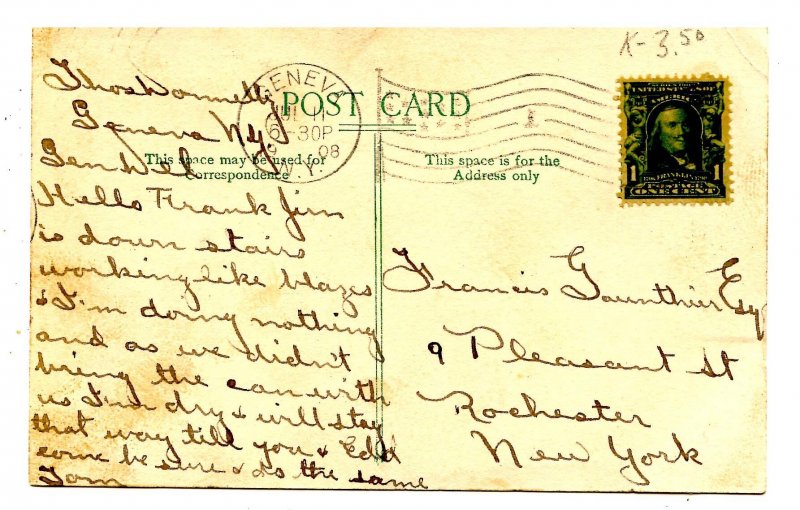 K-3.50
Thos Donnelly
Geneva N.Y.
Gen Del
Hello Frank Jim
is down stairs
working like blazes
& I'm doing nothing
and as we didn't
bring the can with
us I'm dry & will stay
that way till you & Edd
come be sure & do the same
Tom
POST CARD
This space may be used for
Correspondence
This space is for the
Address only
GENEVA
11
6-30P
N.Y.
08
1
UNITED STATES OF
AMERICA
FRANKLIN
1 POSTAGE 1
ONE CENT
Francis Gaunthier Esq
9 Pleasant St
Rochester
New York